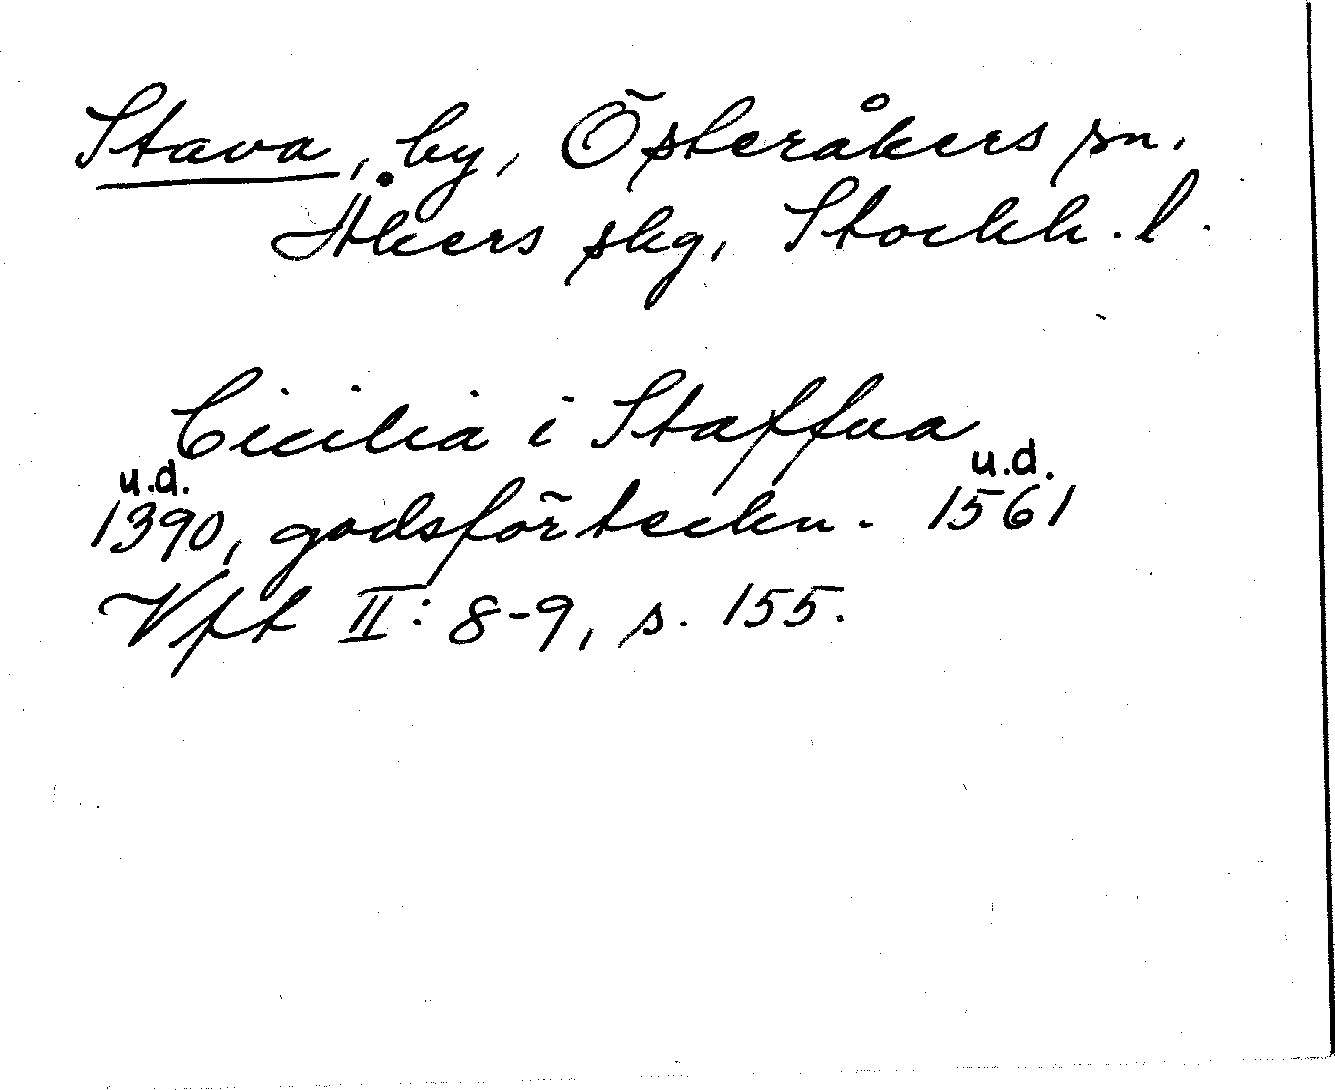 Stava, by, Österåkers sn.
Åkers skg, Stockh. l.
Cicilia i Staffua
u.d. u.d.
1390, godsförteckn. 1561
Vft II: 8-9, s. 155.